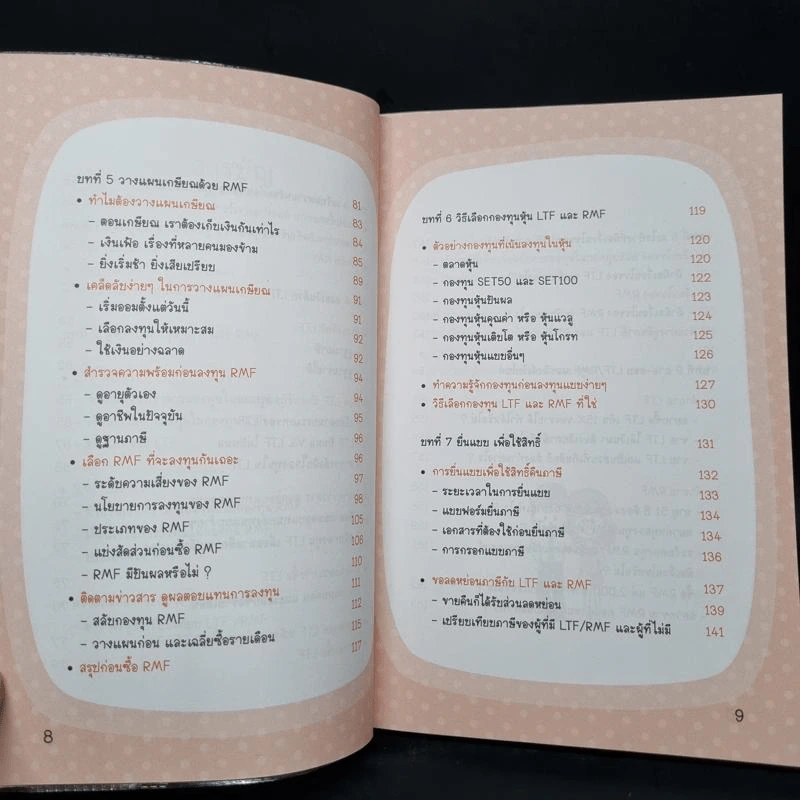 บทที่ 5 วางแผนเกษียณด้วย RMF 81
• ทำไมต้องวางแผนเกษียณ 83
- ตอนเกษียณ เราต้องเก็บเงินกันเท่าไร 84
- เงินเฟ้อ เรื่องที่หลายคนมองข้าม 85
- ยิ่งเริ่มช้า ยิ่งเสียเปรียบ 89
• เคล็ดลับง่ายๆ ในการวางแผนเกษียณ 91
- เริ่มออมตั้งแต่วันนี้ 91
- เลือกลงทุนให้เหมาะสม 92
- ใช้เงินอย่างฉลาด 92
• สำรวจความพร้อมก่อนลงทุน RMF 94
- ดูอายุตัวเอง 94
- ดูอาชีพในปัจจุบัน 95
- ดูฐานภาษี 96
• เลือก RMF ที่จะลงทุนกันเถอะ 96
- ระดับความเสี่ยงของ RMF 97
- นโยบายการลงทุนของ RMF 98
- ประเภทของ RMF 105
- แบ่งสัดส่วนก่อนซื้อ RMF 108
- RMF มีปันผลหรือไม่ ? 110
• ติดตามข่าวสาร ดูผลตอบแทนการลงทุน 111
- สลับกองทุน RMF 112
- วางแผนก่อน และเฉลี่ยซื้อรายเดือน 115
• สรุปก่อนซื้อ RMF 117
8
บทที่ 6 วิธีเลือกกองทุนหุ้น LTF และ RMF 119
• ตัวอย่างกองทุนที่เน้นลงทุนในหุ้น 120
- ตลาดหุ้น 120
- กองทุน SET50 และ SET100 122
- กองทุนหุ้นปันผล 123
- กองทุนหุ้นคุณค่า หรือ หุ้นแวลู 124
- กองทุนหุ้นเติบโต หรือ หุ้นโกรท 125
- กองทุนหุ้นแบบอื่นๆ 126
• ทำความรู้จักกองทุนก่อนลงทุนแบบง่ายๆ 127
• วิธีเลือกกองทุน LTF และ RMF ที่ใช่ 130
บทที่ 7 ยื่นแบบ เพื่อใช้สิทธิ์ 131
• การยื่นแบบเพื่อใช้สิทธิ์คืนภาษี 132
- ระยะเวลาในการยื่นแบบ 133
- แบบฟอร์มยื่นภาษี 134
- เอกสารที่ต้องใช้ก่อนยื่นภาษี 134
- การกรอกแบบภาษี 136
• ขอลดหย่อนภาษีกับ LTF และ RMF 137
- ขายคืนก็ได้รับส่วนลดหย่อน 139
- เปรียบเทียบภาษีของผู้ที่มี LTF/RMF และผู้ที่ไม่มี 141
9